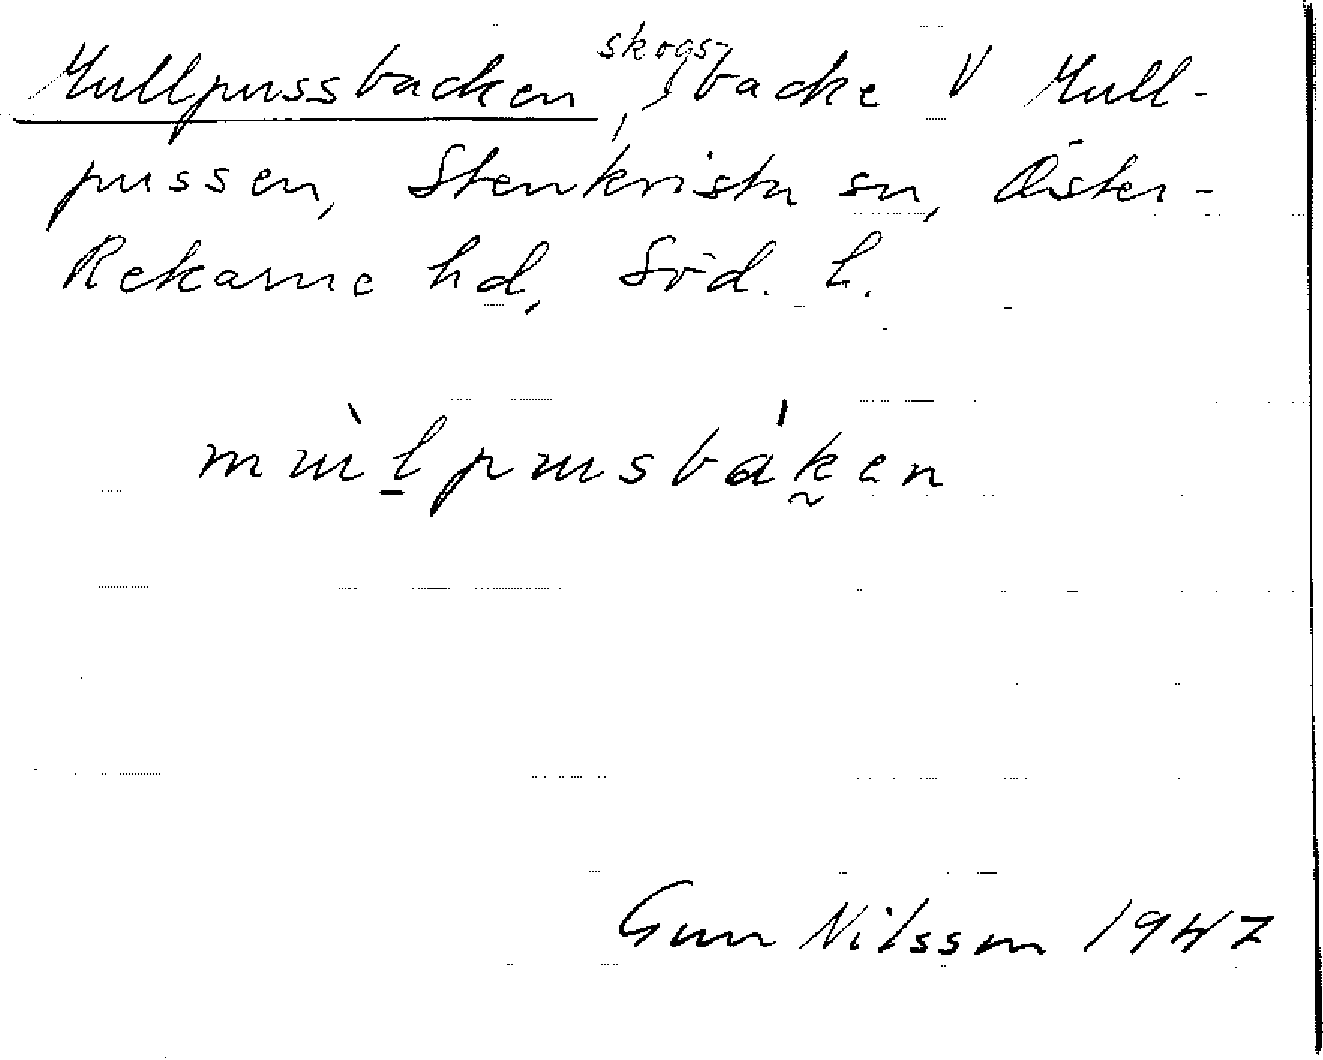 Mullpussbacken, skogsbacke V Mull-
pussen, Stenkvista sn, Öster-
Rekarne hd, Söd. l.
mùlpusbáken
Gun Nilsson 1947